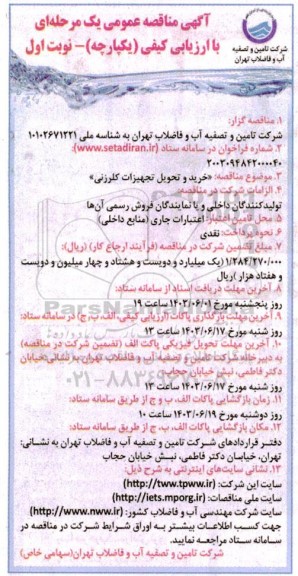 آگهی مناقصه عمومی یک مرحله‌ای
با ارزیابی کیفی (یکپارچه)- نوبت اول
شرکت تامین و تصفیه
آب و فاضلاب تهران
۱. مناقصه گزار:
شرکت تامین و تصفیه آب و فاضلاب تهران به شناسه ملی ۱۰۱۰۲۶۷۱۲۲۱
۲. شماره فراخوان در سامانه ستاد (www.setadiran.ir):
۲۰۰۳۰۹۴۸۴۲۰۰۰۰۴۰
۳. موضوع مناقصه: «خرید و تحویل تجهیزات کلرزنی»
۴. الزامات شرکت در مناقصه:
تولیدکنندگان داخلی و یا نمایندگان فروش رسمی آن‌ها
۵. محل تامین اعتبار: اعتبارات جاری (منابع داخلی)
۶. نحوه پرداخت: نقدی
۷. مبلغ تضمین شرکت در مناقصه (فرآیند ارجاع کار) (ریال):
۱/۲۸۴/۲۷۰/۰۰۰ (یک میلیارد و دویست و هشتاد و چهار میلیون و دویست
و هفتاد هزار )ریال
۸. آخرین مهلت دریافت اسناد از سامانه ستاد:
روز پنجشنبه مورخ ۱۴۰۳/۰۶/۰۱ ساعت ۱۹
۹. آخرین مهلت بارگذاری پاکات (ارزیابی کیفی، الف، ب، ج) در سامانه ستاد:
روز شنبه مورخ ۱۴۰۳/۰۶/۱۷ ساعت ۱۳
۱۰. آخرین مهلت تحویل فیزیکی پاکت الف (تضمین شرکت در مناقصه)
به دبیرخانه شرکت تامین و تصفیه آب و فاضلاب تهران به نشانی:خیابان
دکتر فاطمی، نبش خیابان حجاب
روز شنبه مورخ ۱۴۰۳/۰۶/۱۷ ساعت ۱۳
۱۱. زمان بازگشایی پاکات الف، ب و ج از طریق سامانه ستاد:
روز دوشنبه مورخ ۱۴۰۳/۰۶/۱۹ ساعت ۱۰
۱۲. مکان بازگشایی پاکات الف، ب، ج از طریق سامانه ستاد:
دفتر قراردادهای شرکت تامین و تصفیه آب و فاضلاب تهران به نشانی:
تهران، خیابان دکتر فاطمی، نبش خیابان حجاب
۱۳. نشانی سایت‌های اینترنتی به شرح ذیل:
سایت این شرکت: (http://tww.tpww.ir)
سایت ملی مناقصات: (http://iets.mporg.ir)
سایت شرکت مهندسی آب و فاضلاب کشور: (http://www.nww.ir)
جهت کسب اطلاعات بیشتر به اوراق شرایط شرکت در مناقصه در
سامانه ستاد مراجعه نمایید.
شرکت تامین و تصفیه آب و فاضلاب تهران(سهامی خاص)